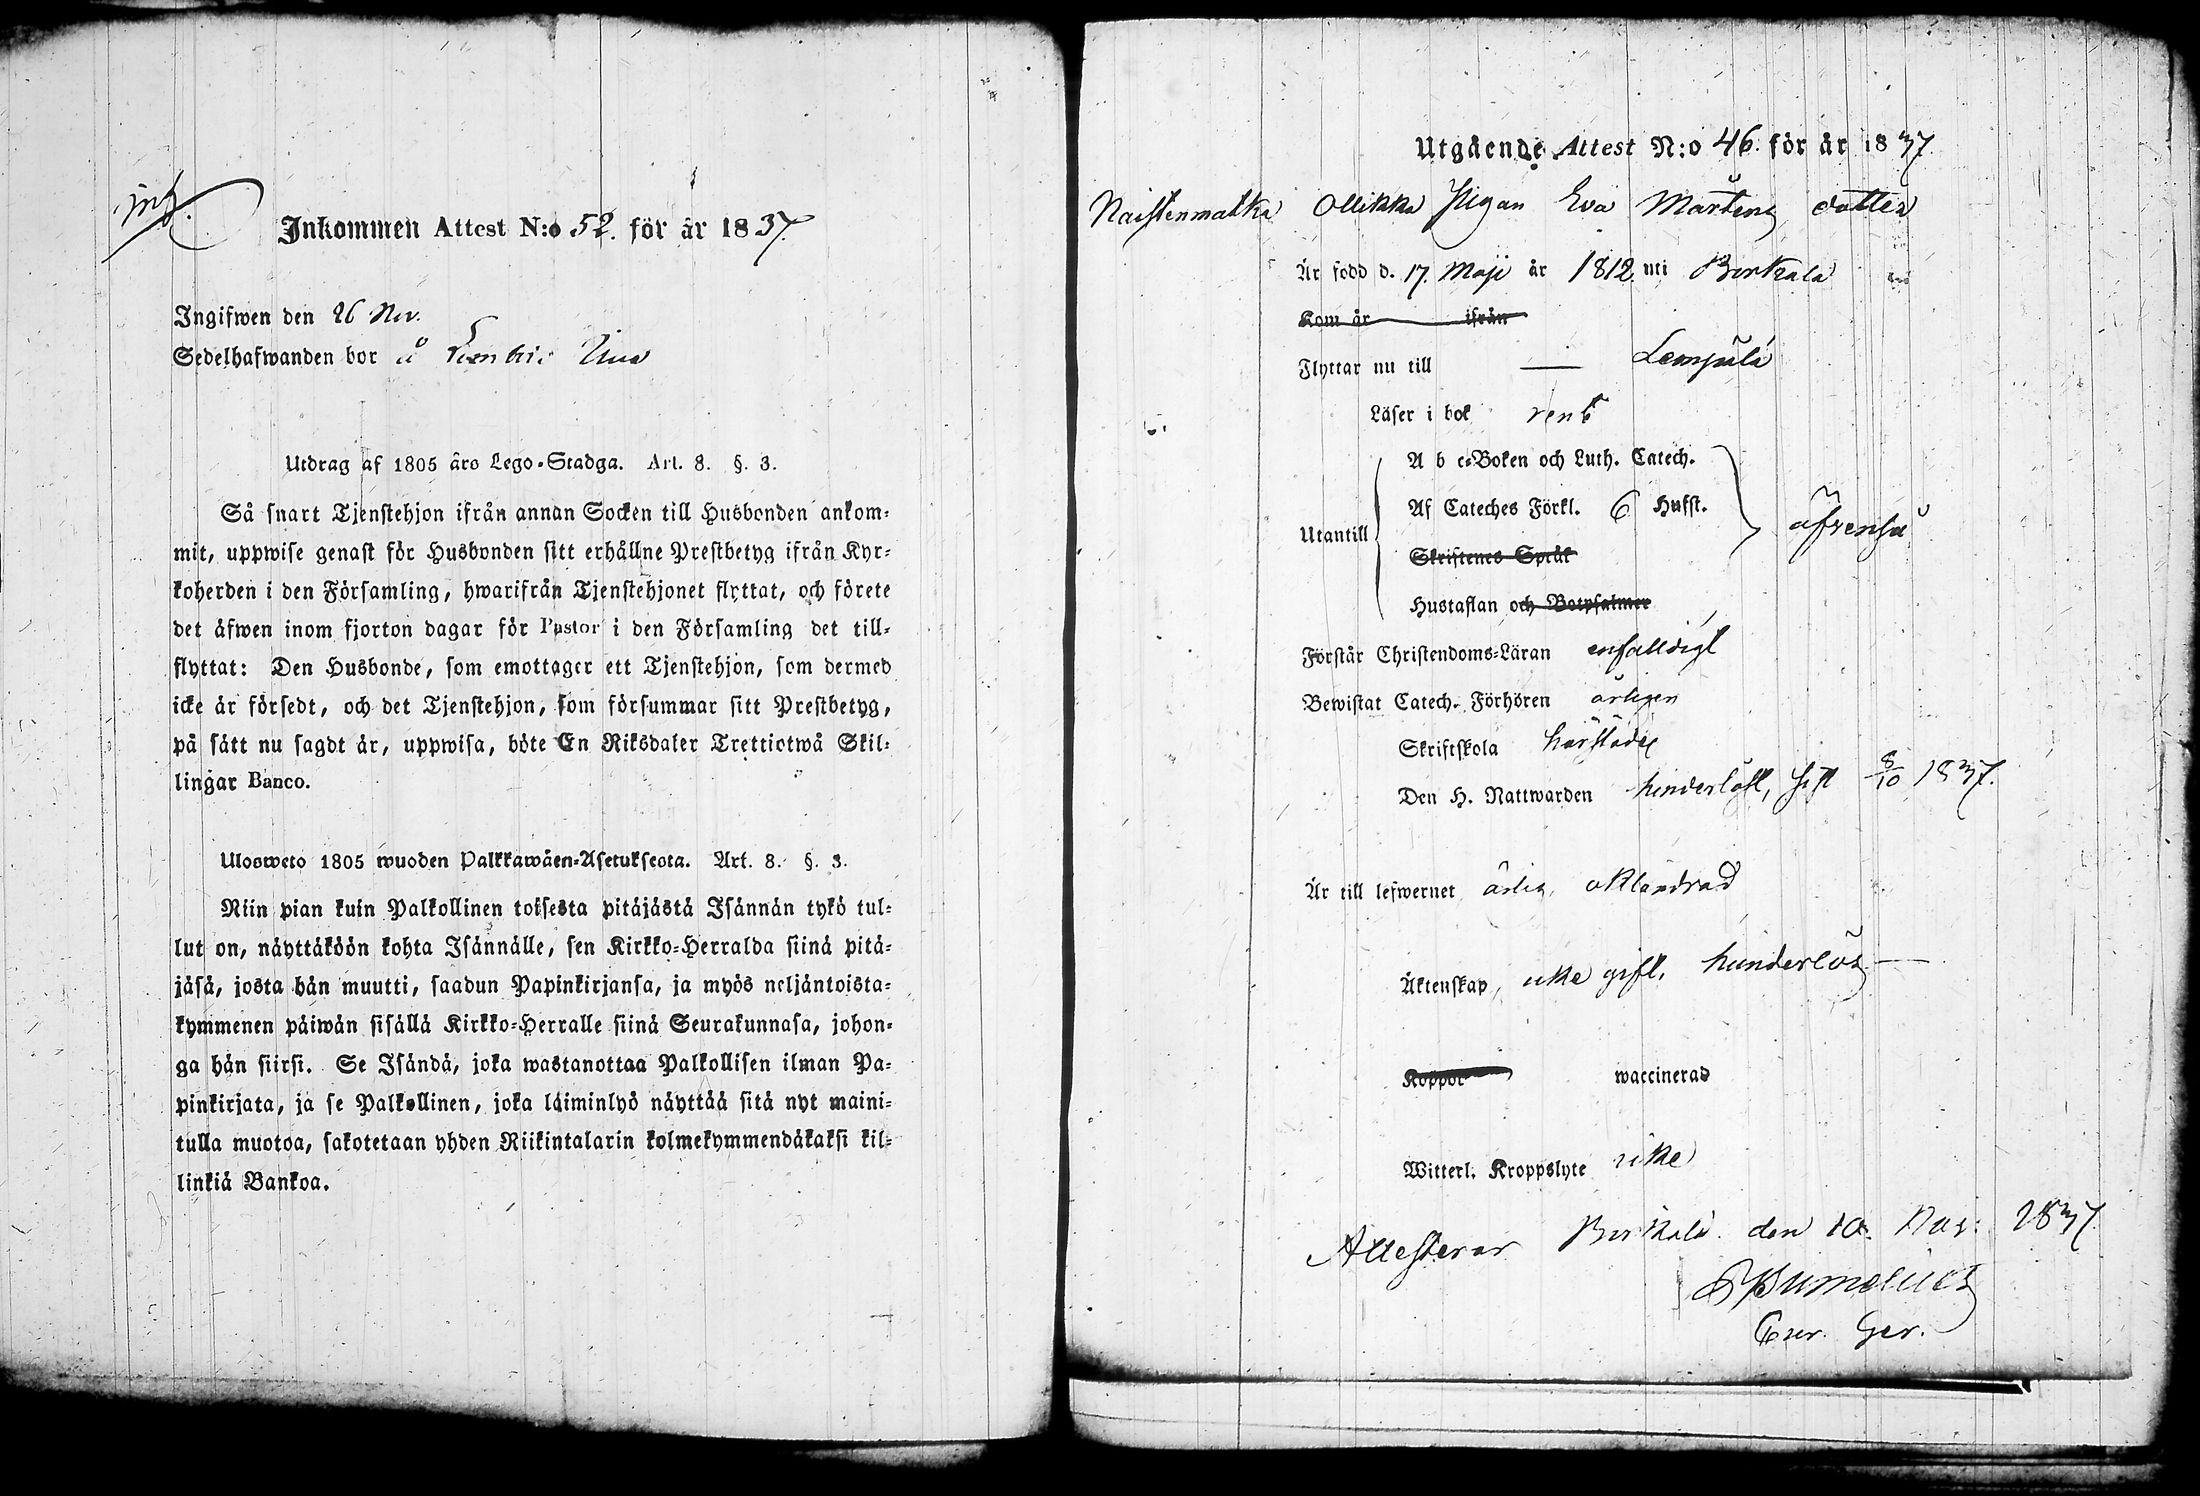 Inkommen Attest N:o 52. för år 1837.
Ingifwen den 26 Nov.
Sedelhafwanden bor å
Utdrag af 1805 års Lego-Stadga. Art. 8. §. 3.
Så snart Tjenstehjon ifrån annan Socken till Husbonden ankom-
mit, uppwise genast för Husbonden sitt erhållne Prestbetyg ifrån Kyr-
koherden i den Församling, hwarifrån Tjenstehjonet flyttat, och förete
det äfwen inom fjorton dagar för Pastor i den Församling det till-
flyttat: Den Husbonde, som emottager ett Tjenstehjon, som dermed
icke är försedt, och det Tjenstehjon, som försummar sitt Prestbetyg,
på sätt nu sagdt är, uppwisa, böte En Riksdaler Trettiotwå Skil-
lingar Banco.
Ulosweto 1805 wuoden Palkkawäen-Asetuksesta. Art. 8. §. 3.
Niin pian kuin Palkollinen toisesta pitäjästä Isännän tykö tul-
lut on, näyttäköön kohta Isännälle, sen Kirkko-Herralda siinä pitä-
jäsä, josta hän muutti, saadun Papinkirjansa, ja myös neljäntoista-
kymmenen päiwän sisällä Kirkko-Herralle siinä Seurakunnasa, johon-
ga hän siirsi. Se Isändä, joka wastanottaa Palkollisen ilman Pa-
pinkirjata, ja se Palkollinen, joka läiminlyö näyttää sitä nyt maini-
tulla muotoa, sakotetaan yhden Riikintalarin kolmekymmendäkaksi kil-
linkiä Bankoa.
Utgående Attest N:o 46. för år 1837
Naistenmatka Ollikka Pigan Eva Mårtens dotter
Är född d. 17. Maji år 1812. uti Birkala
Kom år ifrån
Flyttar nu till Lempälä
Läser i bok rent
A b c-Boken och Luth. Catech.
Af Cateches Förkl. 6 Hufst.
Utantill öfrensa
Skriftenes Språk
Hustaflan och Botpsalmer
Förstår Christendoms-Läran enfalldigt
Bewistat Catech. Förhören årligen
Skriftskola härstädes
Den H. Nattwarden hinderlöst, sist 8/10 1837.
Är till lefwernet ärlig, oklandrad
Äktenskap, icke gift, hinderlös
Koppor waccinerad
Witterl. Kroppslyte icke
Attesterar Birkala den 10. Nov: 1837